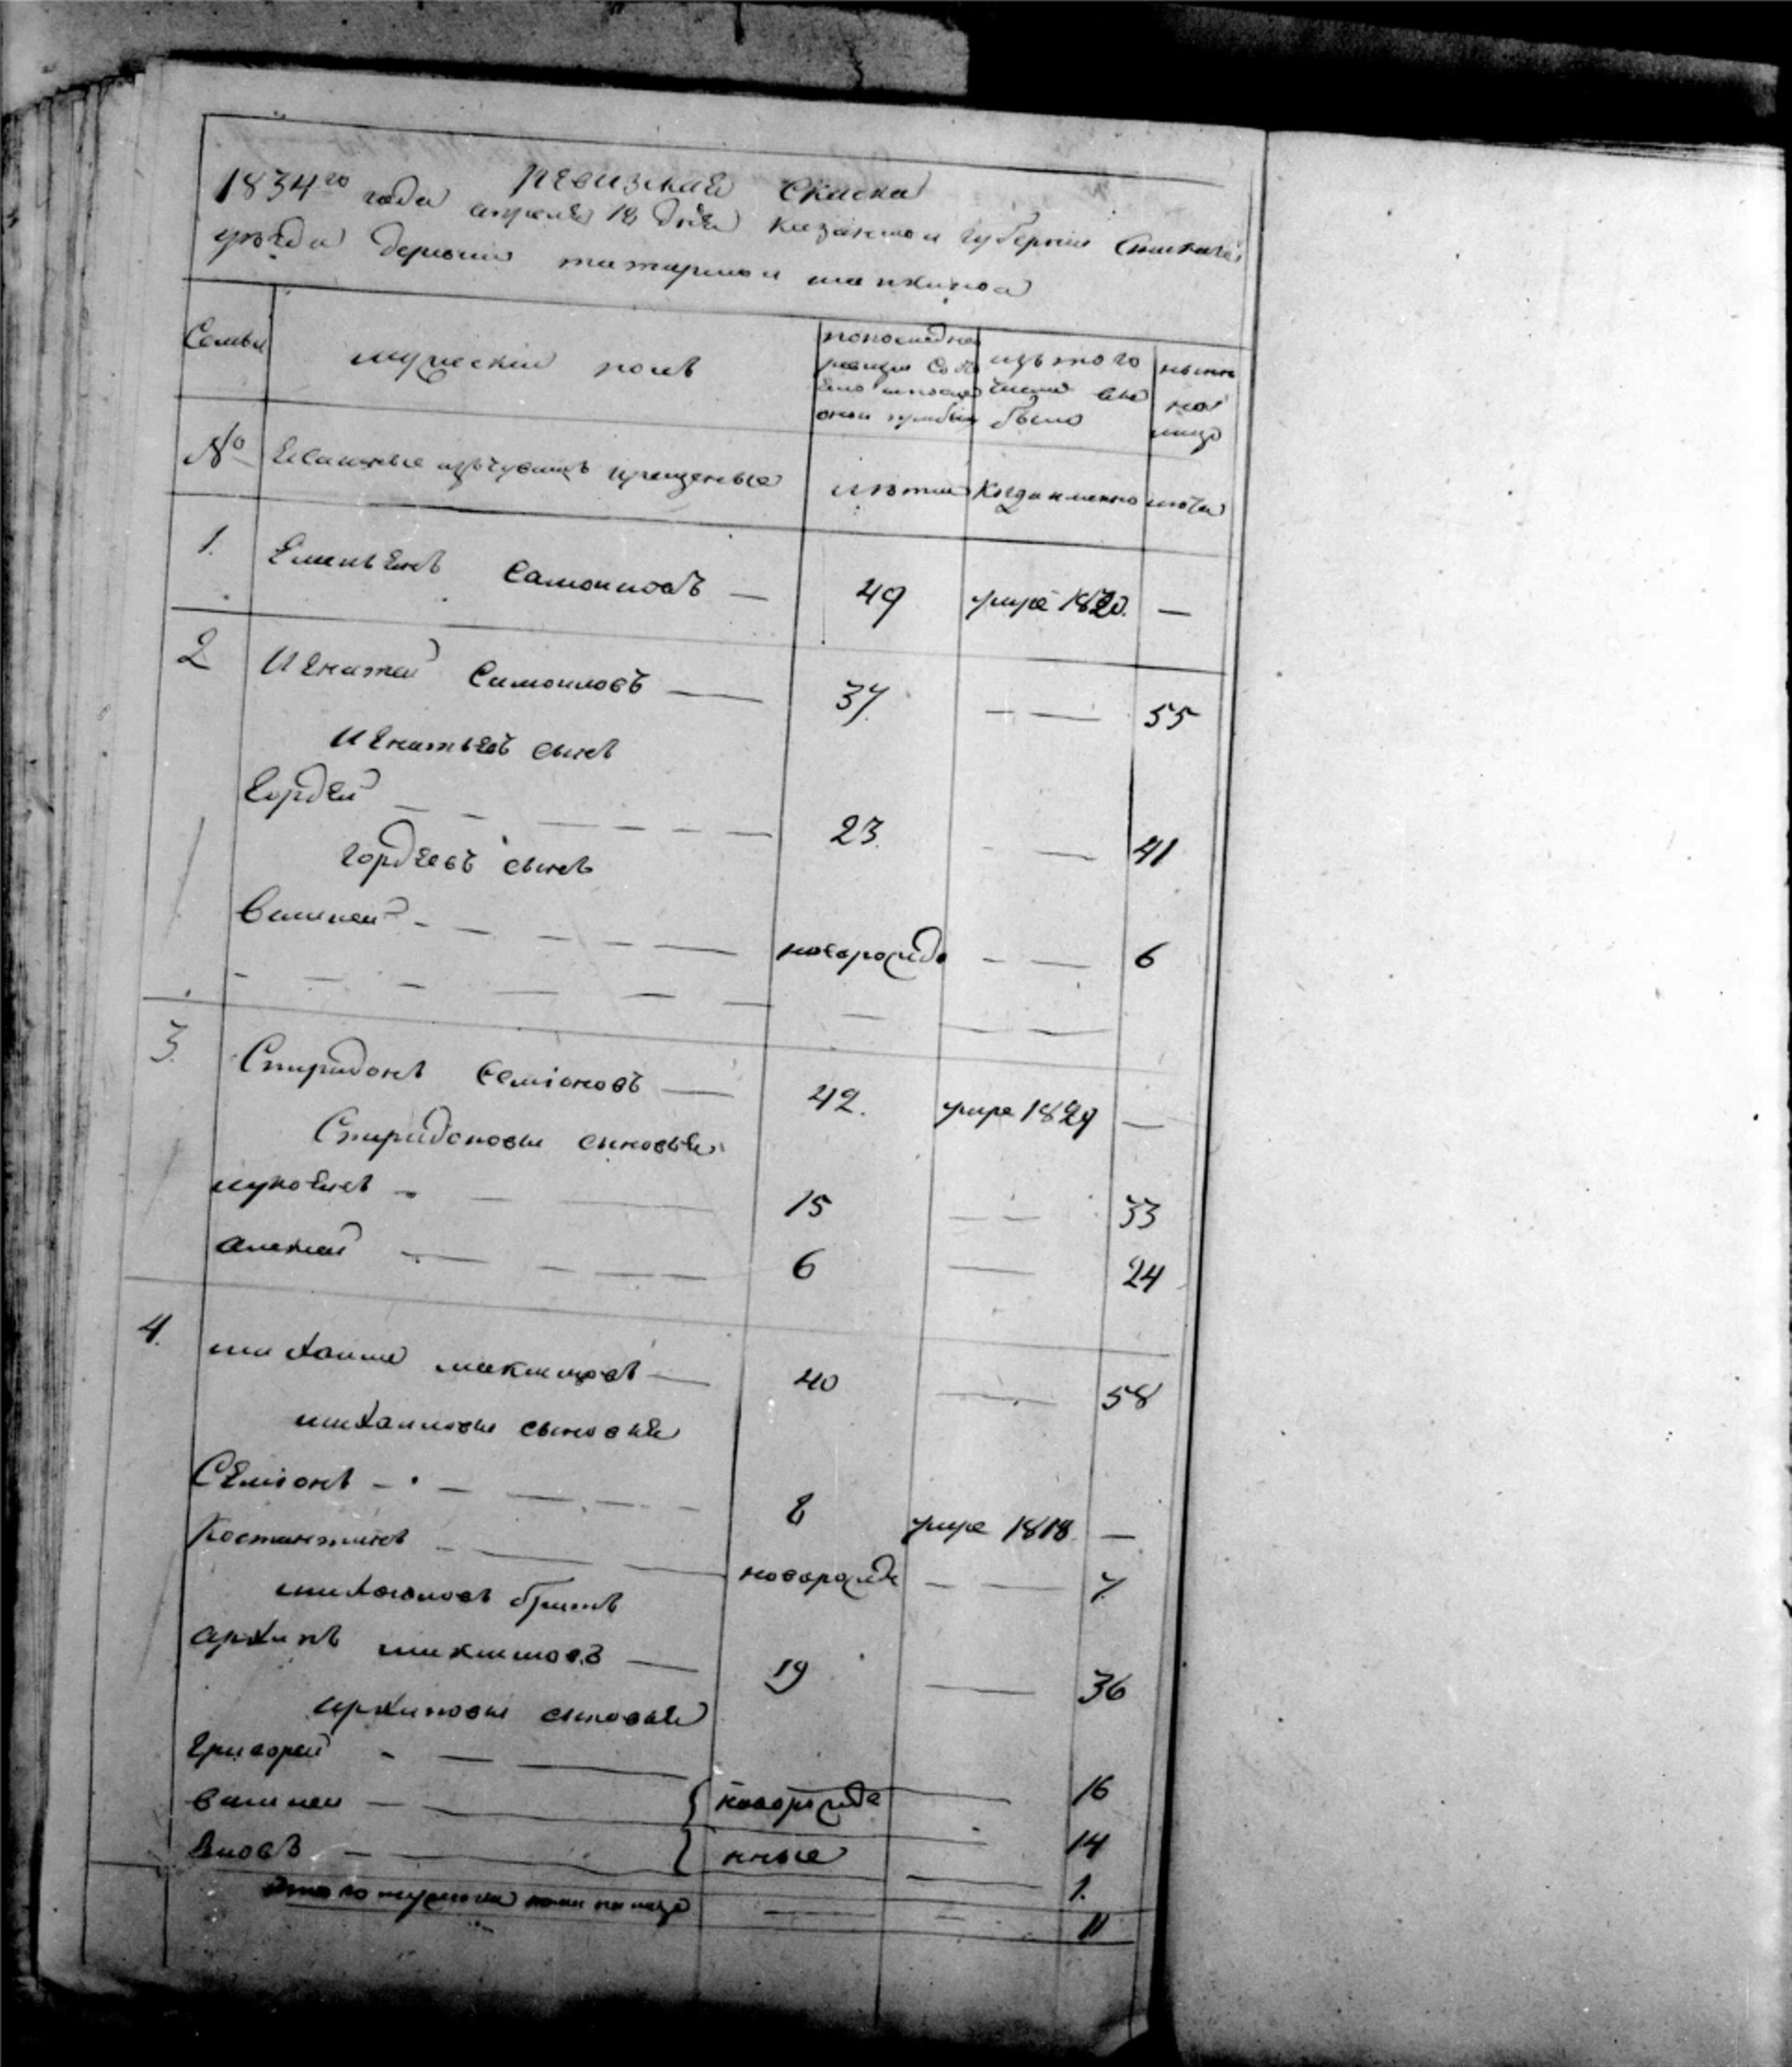 Ревизская Скаска
1834го года апреля 18 дня казанской губернии Спаскаго
уезда деревни татарской
Семьи
мужескій полъ
по последней ревизіи состояло и после оной прибыло
изъ того числа выбыло
ныне на лицо
№
Ясашные изъ чувашъ крещеные
лета
Когда именно
лета
1. Емельянъ Самойловъ — 49 умре 1820. —
2 Игнатей Самойловъ — 37. — — 55
Игнатьевъ сынъ
Гордей — 23. — — 41
Гордеевъ сынъ
Василей — новорожде — — 6
3. Спиридонъ Семіоновъ — 42. умре 1829 —
Спиридоновы сыновья
лукоянъ — 15 — — 33
алексей — 6 — 24
4. михаила максимовъ — 40 — 58
михайловы сыновья
Семіонъ — 8 умре 1818 —
Костантинъ — новорожде — — 7.
михайловъ братъ
архипъ максимовъ — 19 — 36
архиповы сыновья
Григорей — 16
василей — новорожде — 14
Яковъ — нные — 1.
Итого мужеска пола на лицо — — 11